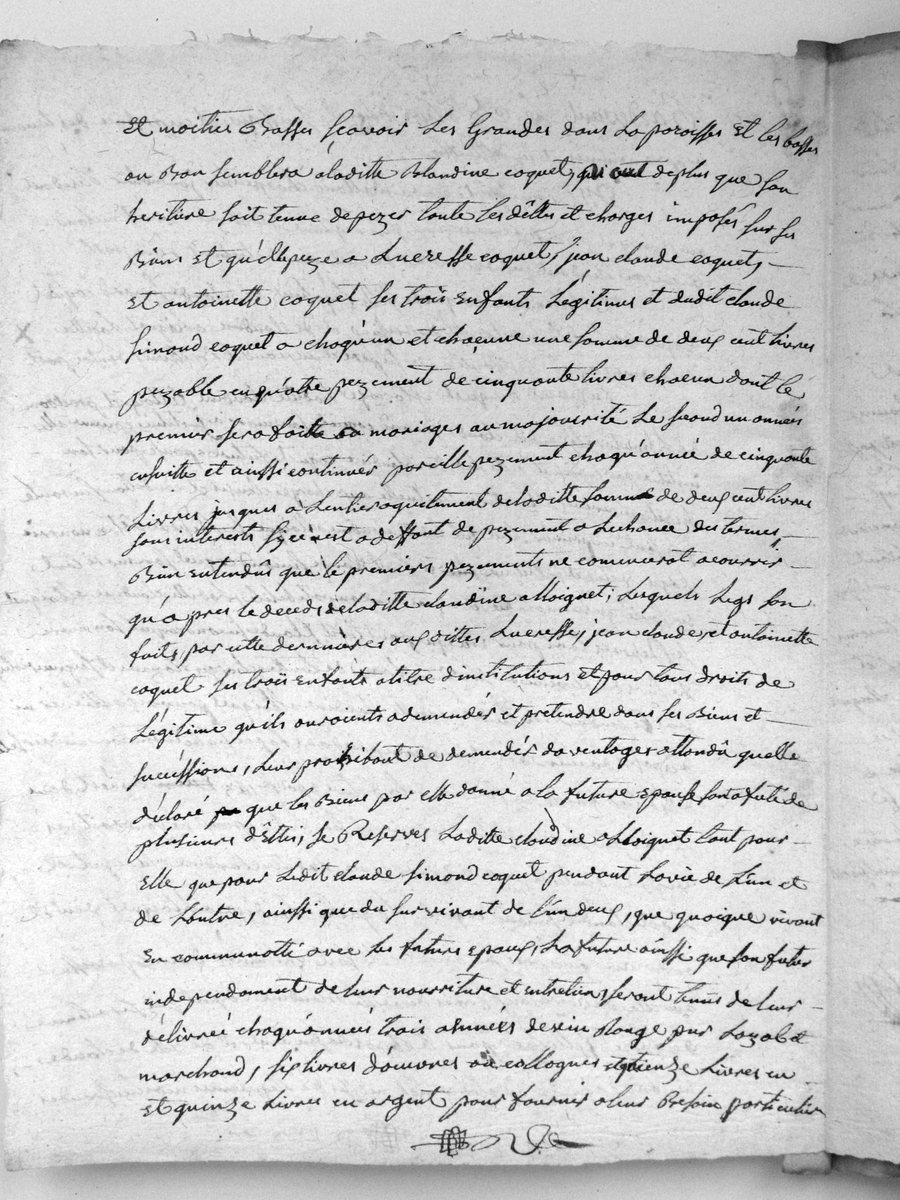 Et moitier Basses sçavoir Les Grandes dans La paroisse Et les basses
ou Bon semblera aladitte Blandine coquet, deplus que son
heritiere soit tenue depezer toute les dêttes et charges imposés sur ses
Biens Et qu'ellepeze a Lucresse coquet, jean claude coquet,
Et antoinette coquet ses trois Enfants Légitimes et dudit claude
simond coquet a chaqu'un et chaqune une somme de deux cent livres
pezable en quatre pezement de cinquante livres chacun dont le
premier sera fait au mariages au majourité Le second un année
ensuitte et ainssi continuér pareille pezement chaqu'année de cinquante
Livres jusques a Lentier aquitement deladitte somme de deux cent livres
sans interests sy ce n'est a deffaut de pezement a Lechance des termes,
Bien entendûs que le premiers pezements ne commencerat a courrir
qu'a pres le deceds deladitte claudine alloignet, Lesquels Legs son
faits, par cette dernniere aux dittes Lucresse, jean claude, et antoinette
coquet ses trois Enfants atitre d'institutions Et pour tous droits de
Légitime qu'ils auroients a demendér et pretendre dans ses Biens et
succéssions, Leur prohibant de demendér daventages attendû quelle
déclaré que les Biens par elle donné a la future Epouse son afuté de
plusieurs dêttes, se Reserves Laditte claudine alloignet tant pour
Elle que pour Ledit claude simond coquet pendant Lavie de L'un et
de Lautre, ainssi que du survivant de l'un deux, que quoique vivant
En communotté avec les futurs Epoux, La future ainssi que son futur
independament de leur nourriture et entretien seront tenus de leur
délivreé chaqu'années trois asnnées devin Rouge pur Loyal et
marchand, six livres d'œuvres ou collogues et quinze Livres en
et quinze Livres en argent pour fournir a leur Besoin particulier